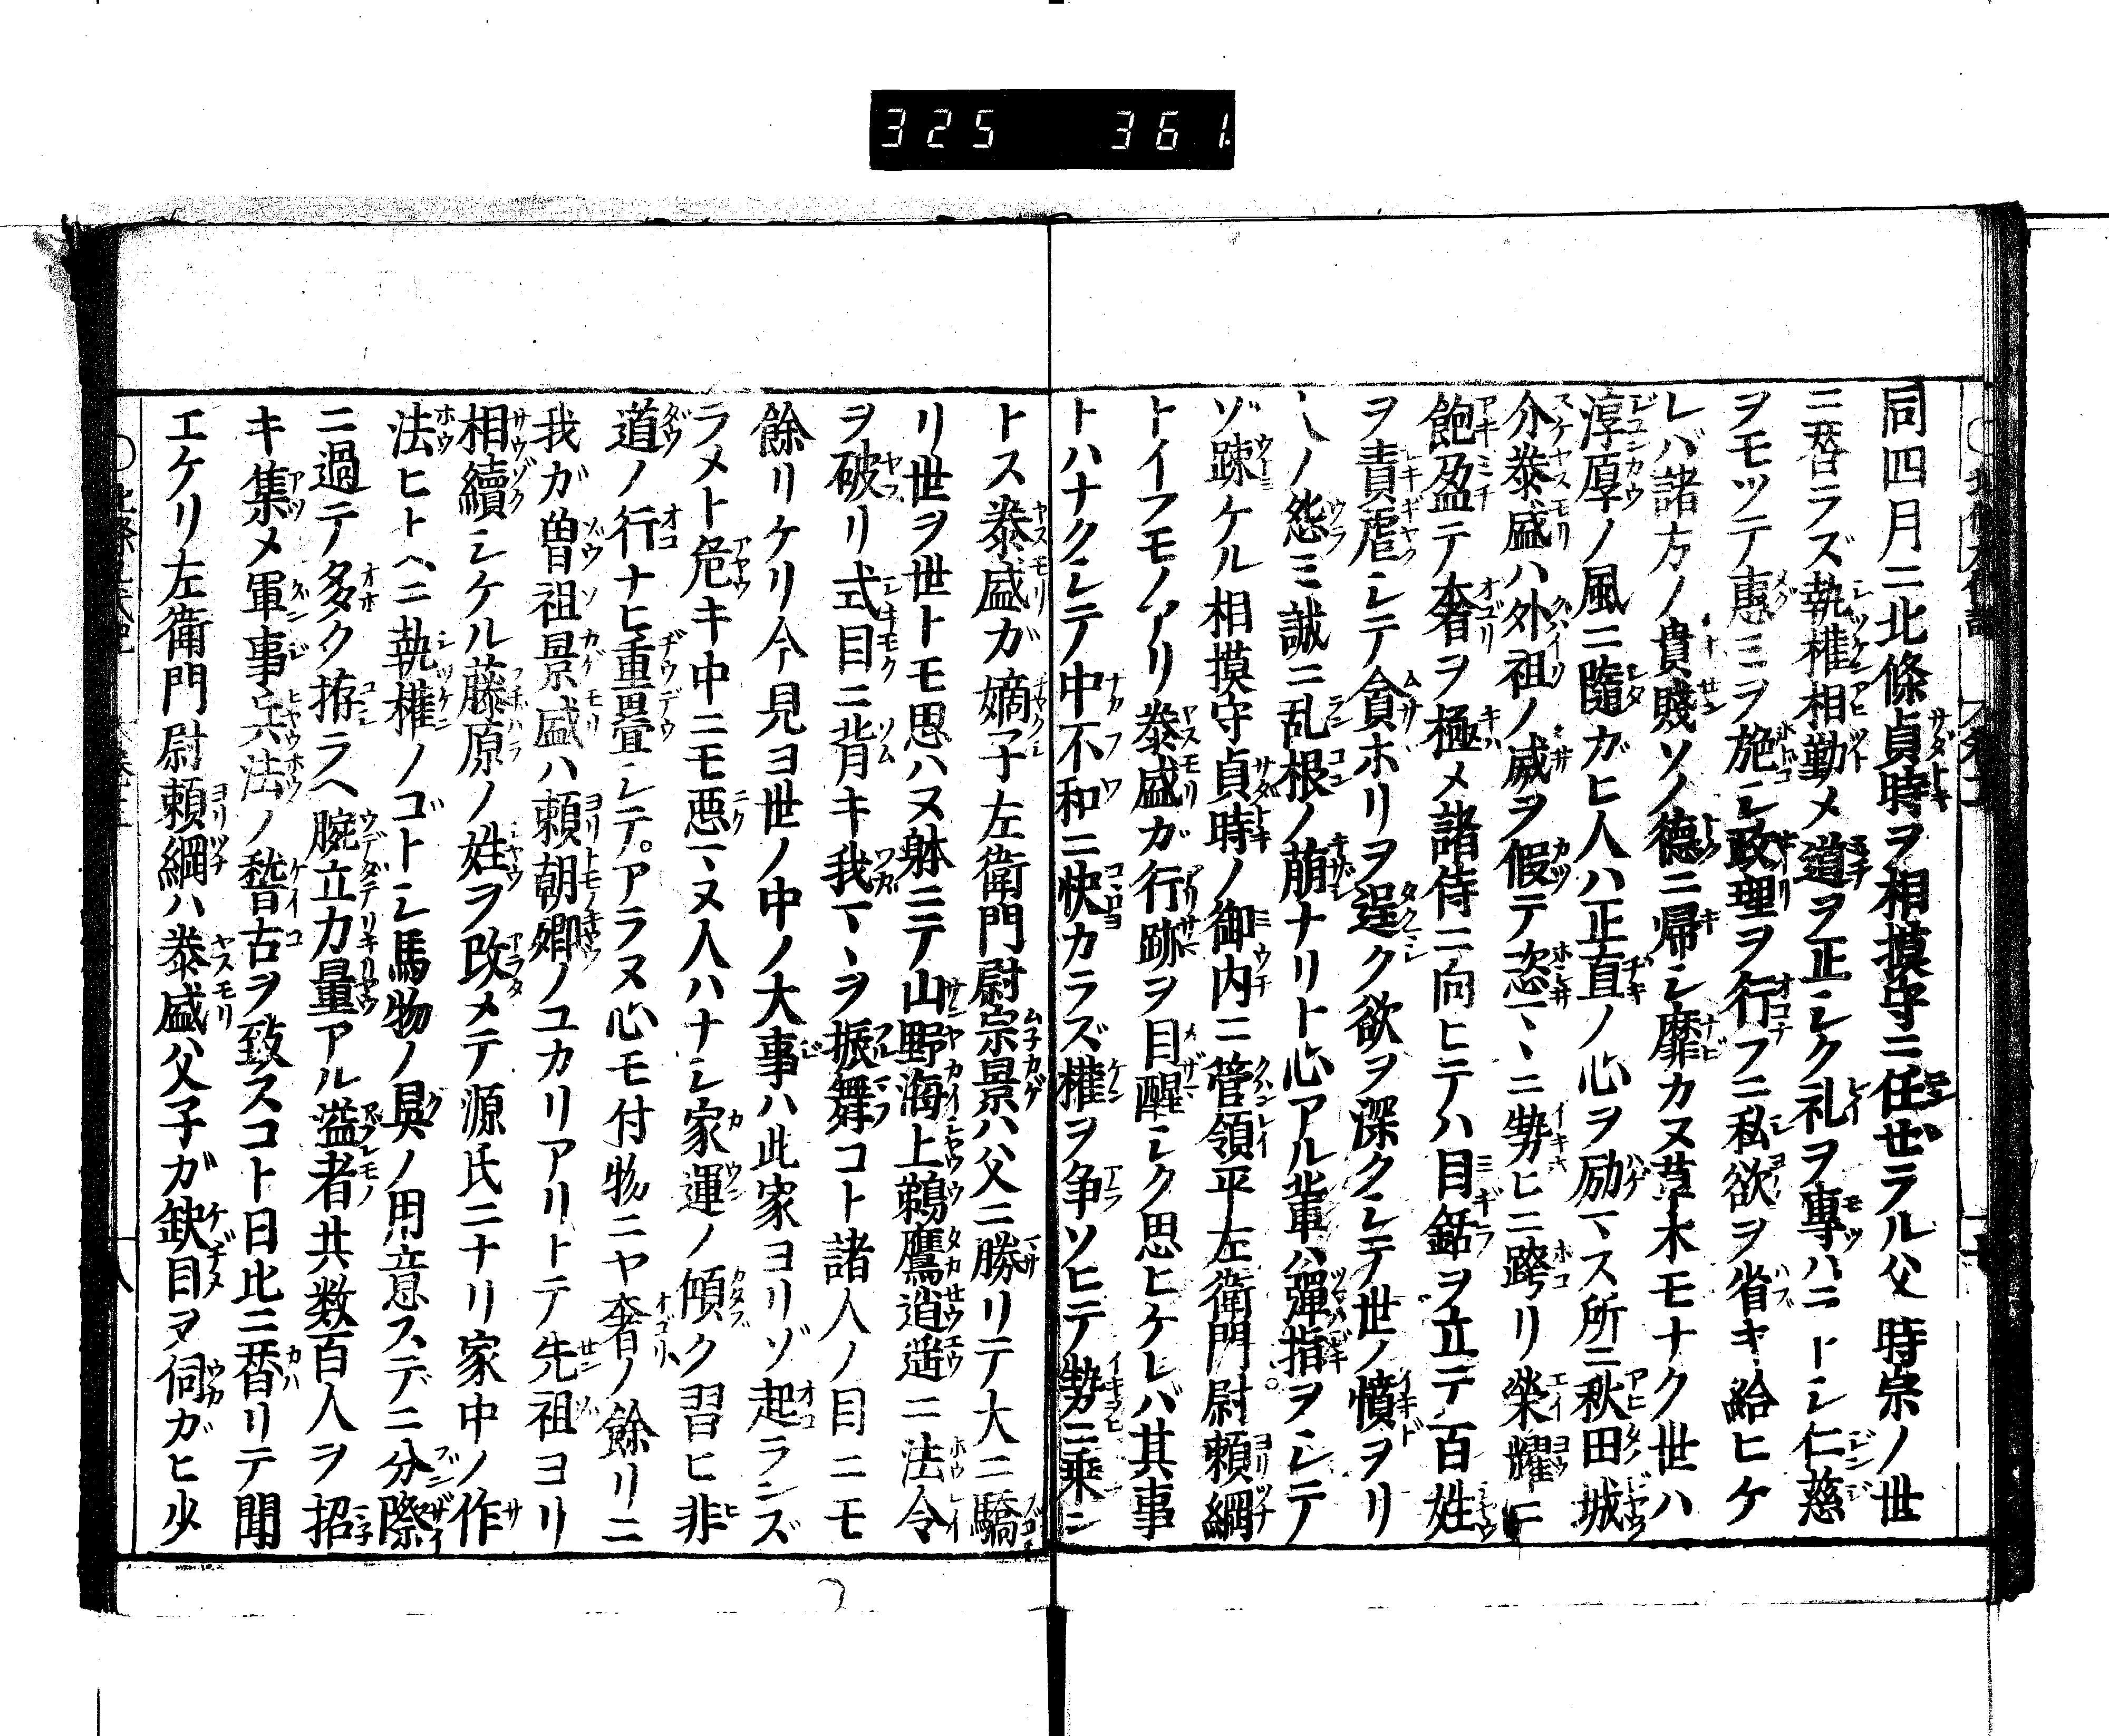 325 361.
同四月ニ北條貞時ヲ相摸守ニ任セラル父時宗ノ世
ニ替ラズ執権相勤メ道ヲ正シク礼ヲ專ハニトシ仁慈
ヲモツテ惠ミヲ施シ政理ヲ行フニ私欲ヲ省キ給ヒケ
レバ諸方ノ貴賤ソノ德ニ帰シ靡カヌ草木モナク世ハ
淳厚ノ風ニ隨ガヒ人ハ正直ノ心ヲ励マス所ニ秋田城
介泰盛ハ外祖ノ威ヲ假テ恣マヽニ勢ヒニ跨リ榮耀ニ
飽盈テ奢ヲ極メ諸侍ニ向ヒテハ目鉐ヲ立テ百姓
ヲ責虐シテ貪ホリヲ逞ク欲ヲ深クシテ世ノ憤ヲリ
人ノ怨ミ誠ニ乱根ノ萠ナリト心アル輩ハ彈指ヲシテ
ゾ疎ケル相摸守貞時ノ御内ニ管領平左衛門尉頼綱
トイフモノアリ泰盛ガ行跡ヲ目醒シク思ヒケレバ其事
トハナクシテ中不和ニ快カラズ権ヲ争ソヒテ勢ニ乗ン
トス泰盛ガ嫡子左衛門尉宗景ハ父ニ勝リテ大ニ驕
リ世ヲ世トモ思ハヌ躰ニテ山野海上鵜鷹逍遥ニ法令
ヲ破リ式目ニ背キ我マヽヲ振舞コト諸人ノ目ニモ
餘リケリ今見ヨ世ノ中ノ大事ハ此家ヨリゾ起ランズ
ラメト危キ中ニモ惡マヌ人ハナシ家運ノ傾ク習ヒ非
道ノ行ナヒ重畳シテ。アラヌ心モ付物ニヤ奢ノ餘リニ
我ガ曽祖景盛ハ頼朝卿ノユカリアリトテ先祖ヨリ
相續シケル藤原ノ姓ヲ改メテ源氏ニナリ家中ノ作
法ヒトヘニ執権ノゴトシ馬物ノ具ノ用意スデニ分際
ニ過テ多ク拵ラヘ腕立力量アル溢者共数百人ヲ招
キ集メ軍事兵法ノ稽古ヲ致スコト日比ニ替リテ聞
エケリ左衛門尉頼綱ハ泰盛父子ガ鈌目ヲ伺ガヒ少